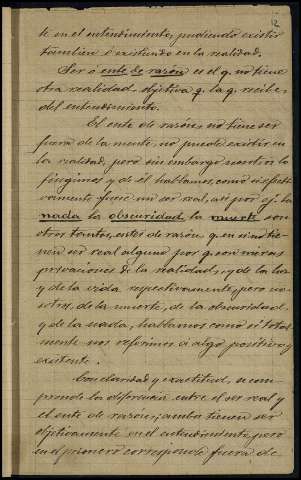 12
te en el entendimiento, pudiendo existir
tambien ó existiendo en la realidad.
Ser ó ente de razón es el q. no tiene
otra realidad objetiva q. la q. recibe
del entendimiento.
El ente de razón, no tiene ser
fuera de la mente, no puede existir en
la realidad, pero sin embargo nosotros lo
fingimos y de él hablamos, como si efecti-
vamente fuese un ser real, así por ej. la
nada la obscuridad, la muerte son
otros tantos entes de razón q. en si no tie-
nen ser real alguno por q. son meras
privaciones de la realidad, y de la luz
y de la vida respectivamente, pero no-
sotros, de la muerte, de la obscuridad,
y de la nada, hablamos como si total
mente nos refirieramos á algo positivo y
existente.
Con claridad y exactitud, se com-
prende la diferencia entre el ser real y
el ente de razón; ambos tienen ser
objetivamente en el entendimiento, pero
en el primero corresponde fuera de